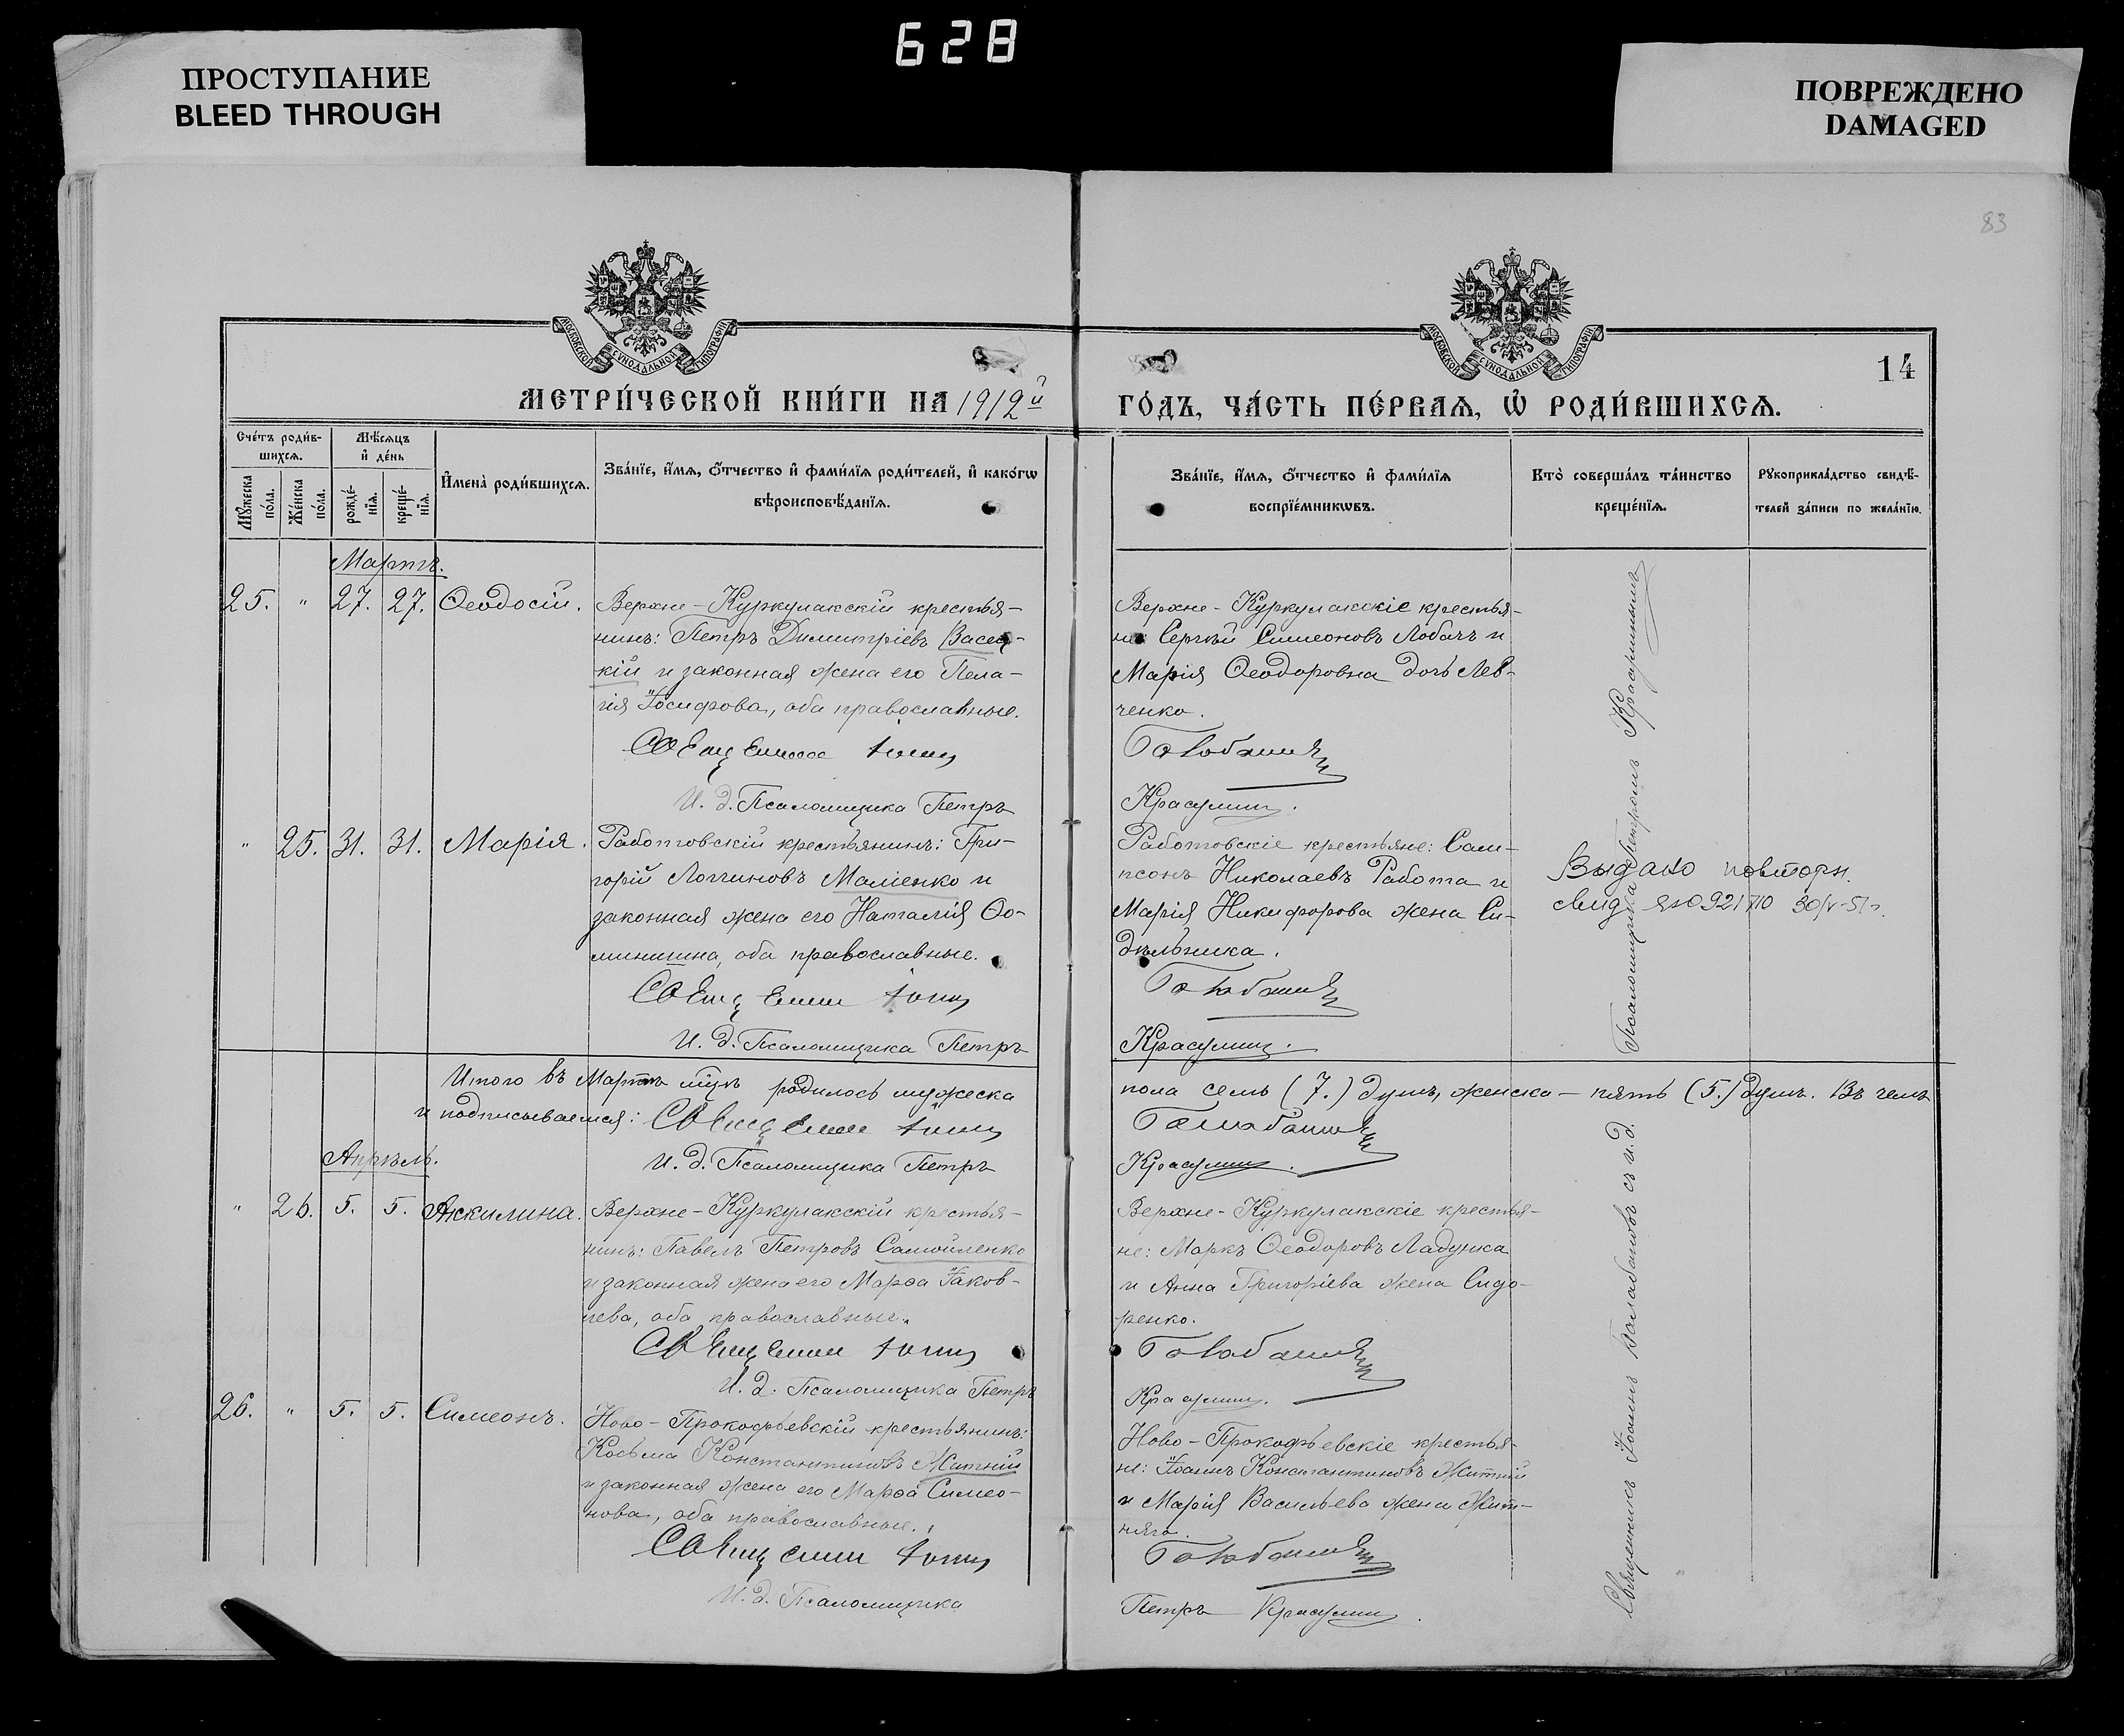 628
ПРОСТУПАНИЕ
BLEED THROUGH
ПОВРЕЖДЕНО
DAMAGED
83
МОСКОВСКОЙ СѴНОДАЛЬНОЙ ТИПОГРАФІИ
МОСКОВСКОЙ СѴНОДАЛЬНОЙ ТИПОГРАФІИ
14
МЕТРИ́ЧЕСКОЙ КНИ́ГИ НА 1912й
ГО́ДЪ, ЧА́СТЬ ПЕ́РВАѦ, Ѡ҆ РОДИ́ВШИХСѦ.
Сче́тъ роди́в-
шихсѧ.
Мѣ́сѧцъ
и҆ де́нь
Мꙋ́жеска
по́ла.
Же́нска
по́ла.
рожде́-
нїѧ.
креще́-
нїѧ.
И҆мена̀ роди́вшихсѧ.
Зва́нїе, и҆́мѧ, ѻ҆́тчество и҆ фами́лїѧ роди́телей, и҆ како́гѡ
вѣроисповѣ́данїѧ.
Зва́нїе, и҆́мѧ, ѻ҆́тчество и҆ фами́лїѧ
воспрїе́мникѡвъ.
Кто̀ соверша́лъ та́инство
креще́нїѧ.
Рꙋкоприкла́дство свидѣ́-
телей за́писи по жела́нїю.
Мартъ.
25. " 27. 27. Ѳеодосій.
Верхне-Куркулакскій крестья-
нинъ: Петръ Димитріевъ Васец-
кій и законная жена его Пела-
гія Іосифова, оба православные.
И. д. Псаломщика Петръ
Верхне-Куркулакскіе крестья-
Сергѣй Симеоновъ Лобачъ и
Марія Ѳеодоровна дочь Лев-
ченко.
Красулинъ.
" 25. 31. 31. Марія.
Работовскій крестьянинъ: Гри-
горій Логгиновъ Маліенко и
законная жена его Наталія Ѳо-
минишна, оба православные.
И. д. Псаломщика Петръ
Работовскіе крестьяне: Сам-
псонъ Николаевъ Работа и
Марія Никифорова жена Си-
дѣльника.
Красулинъ.
Выдано повторн.
свид. 30/V-51г.
Итого въ Мартѣ м-цѣ родилось мужеска
пола семь (7.) душъ, женска — пять (5.) душъ. Въ чемъ
и подписываемся:
И. д. Псаломщика Петръ
Красулинъ.
Апрѣль.
" 26. 5. 5. Акилина.
Верхне-Куркулакскій крестья-
нинъ: Павелъ Петровъ Самойленко
и законная жена его Марѳа Іаков-
лева, оба православные.
И. д. Псаломщика Петръ
Верхне-Куркулакскіе крестья-
не: Маркъ Ѳеодоровъ Ладунка
и Анна Григоріева жена Сидо-
ренко.
Красулинъ.
26. " 5. 5. Симеонъ.
Ново-Прокофьевскій крестьянинъ:
Косьма Константиновъ Житній
и законная жена его Марѳа Симео-
нова, оба православные.
И. д. Псаломщика
Ново-Прокофьевскіе крестья-
не: Іоаннъ Константиновъ Житній
и Марія Васильева жена Жит-
няго.
Петръ Красулинъ.
Священникъ Іоаннъ Балабановъ съ и. д.
Псаломщика Петромъ Красулинымъ